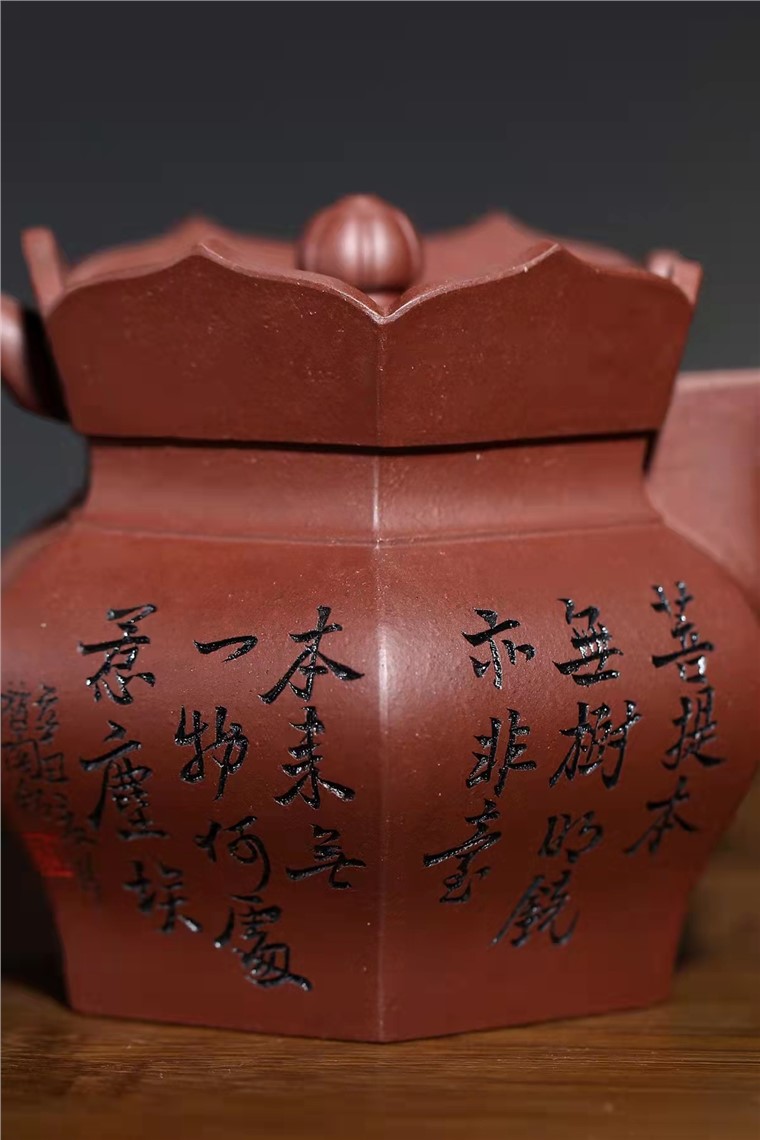 菩提本
無樹明鏡
亦非臺
本来无
一物何處
惹塵埃